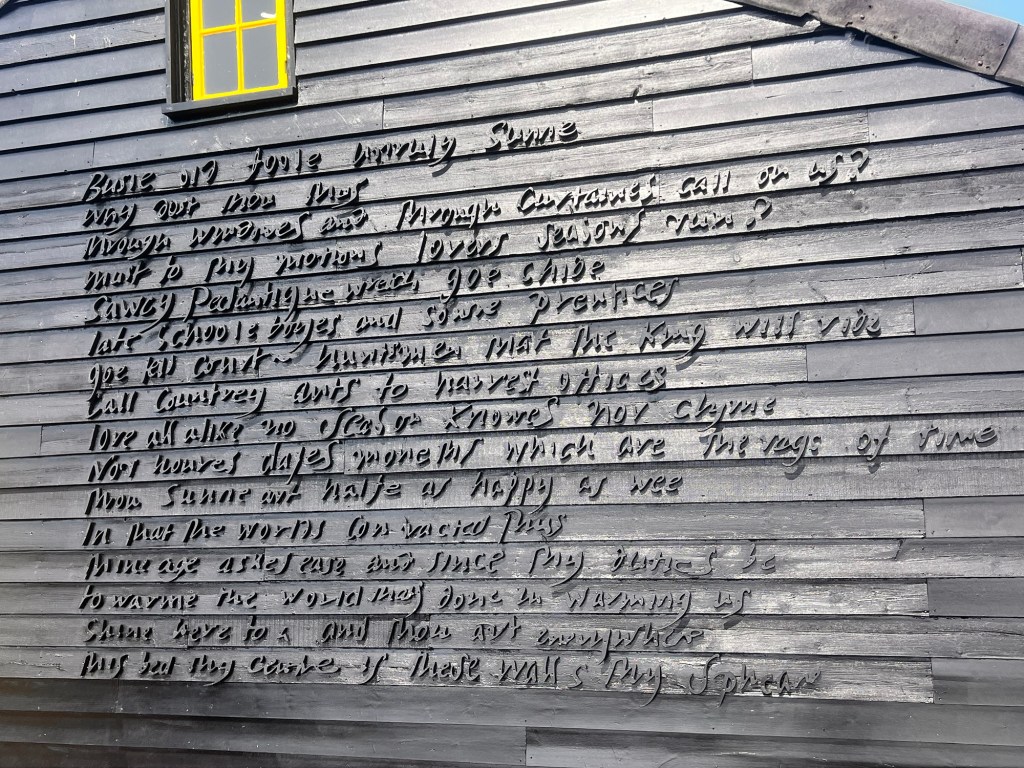 Busie old foole unruly Sunne
Why dost thou thus
Through windowes and through Curtaines call on us?
must to thy motions lovers seasons run?
Sawcy Pedantique wretch goe chide
late schoole boyes and sowre prentices
goe tell Court huntsmen that the King will ride
Call Countrey ants to harvest offices
love all alike no season knowes nor clyme
Nor houres dayes moneths which are the rags of time
Thou Sunne art halfe as happy as wee
In that the worlds contracted thus
Thine age askes ease and since thy duties be
to warme the world thats done in warming us
Shine here to and thou art everywhere
this bed thy center is these walls thy Spheare